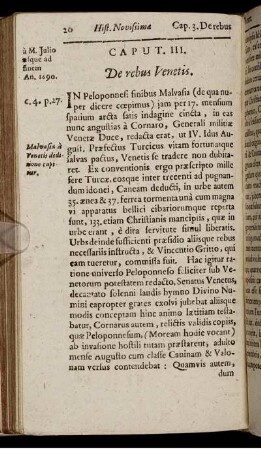 20 Hist. Novissima Cap. 3. De rebus
à M. Julio
usque ad
finem
An. 1690.
CAPUT. III.
De rebus Venetis.
c. 4. p. 27.
IN Peloponnesi finibus Malvasia (de qua nu-
per dicere cœpimus) jam per 17. mensium
spatium arcta satis indagine cincta, in eas
nunc angustias à Cornaro, Generali militiæ
Venetæ Duce, redacta erat, ut IV. Idus Au-
Malvasia à
Venetis dedi-
tione capi-
tur.
guſti. Præfectus Turcicus vitam fortunasque
salvas pactus, Venetis se tradere non dubita-
ret. Ex conventionis ergo præscripto mille
sere Turcæ, eosque inter trecenti ad pugnan-
dum idonei, Caneam deducti, in urbe autem
35. ænea & 37. ferrea tormenta unà cum magna
vi apparatus bellici cibariorumque reperta
sunt, 133. etiam Christianis mancipiis, quæ in
urbe erant, è dira servitute simul liberatis.
Urbs deinde sufficienti præsidio aliisque rebus
necessariis instructa, & Vincentio Gritto, qui
eam tueretur, commissa fuit. Hac igitur ra-
tione universo Peloponneso feliciter sub Ve-
netorum potestatem redacto, Senatus Venetus,
decantato solenni laudis hymno Divino Nu-
mini eapropter grates exolvi jubebat aliisque
modis conceptam hinc animo lætitiam testa-
batur, Cornarus autem, relictis validis copiis,
quæ Peloponnesum, (Moream hodie vocant)
ab invasione hostili tutam præstarent, adulto
mense Augusto cum classe Caninam & Valo-
nam versus contendebat: Quamvis autem,
dum